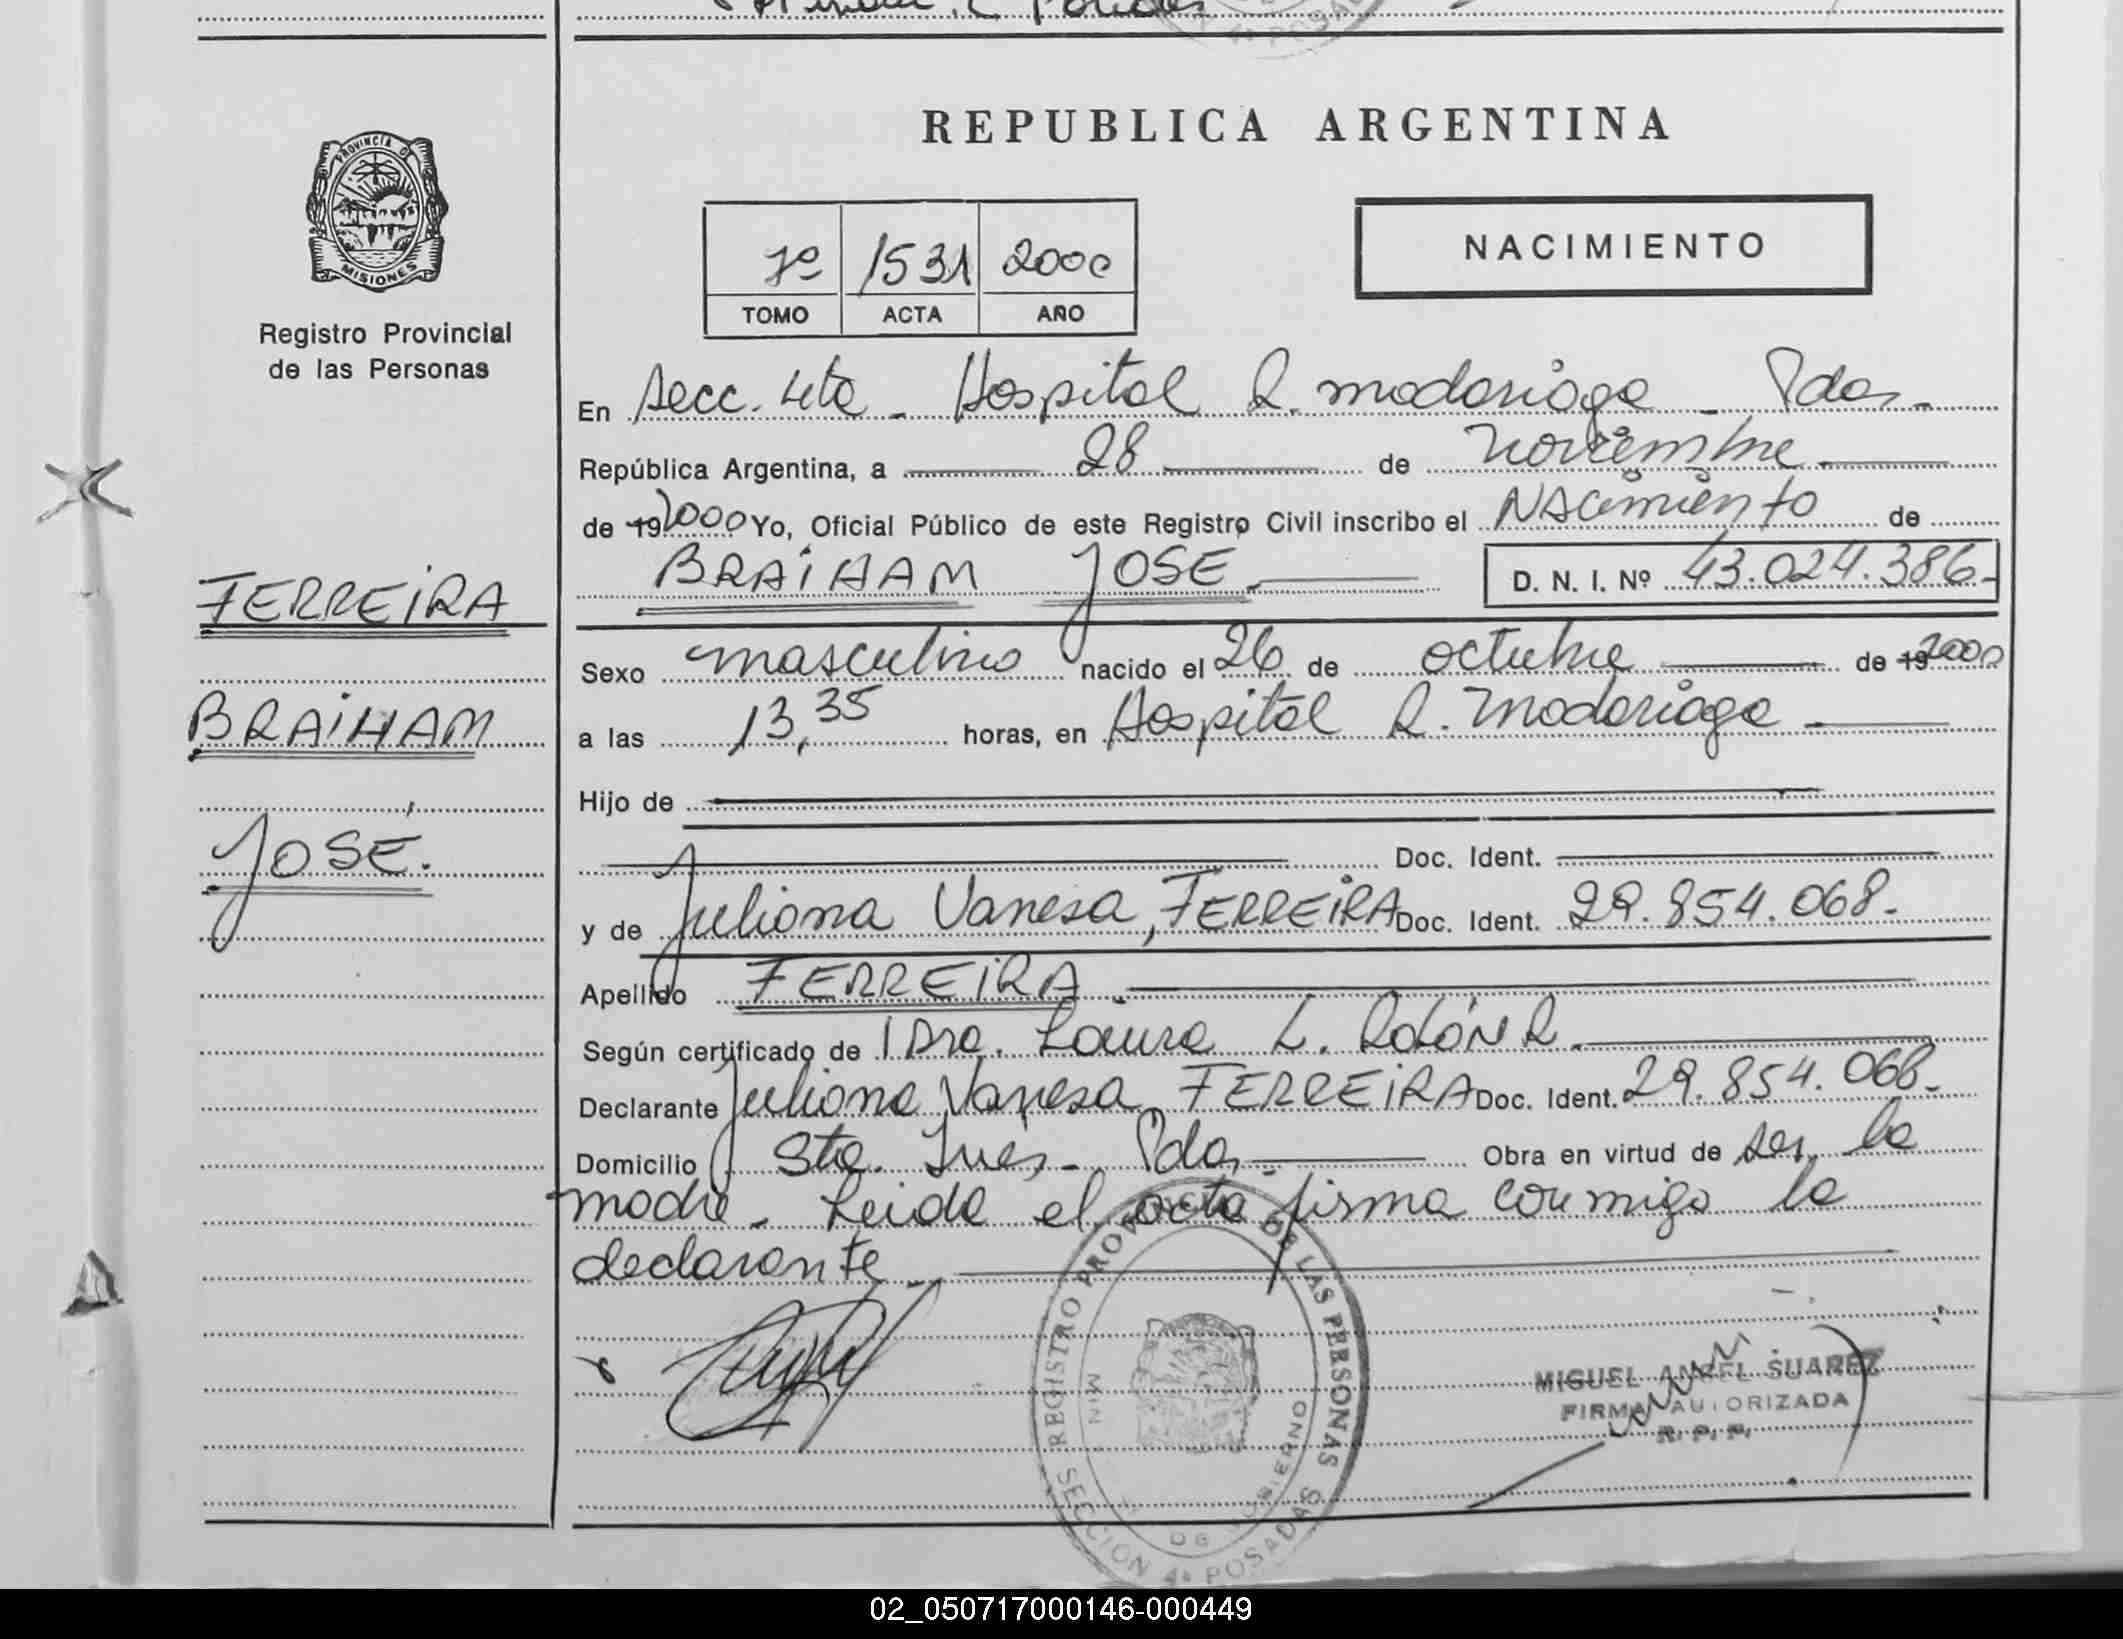 REPUBLICA ARGENTINA
PROVINCIA DE
MISIONES
Registro Provincial
de las Personas
FERREIRA
BRAIHAM
JOSÉ.
7º 1531 2000
TOMO ACTA AÑO
NACIMIENTO
En Secc. 4ta - Hospital R. Madariaga - Pdas.-
República Argentina, a 28 de Noviembre
de 19 2000 Yo, Oficial Público de este Registro Civil inscribo el NAcimiento de
BRAIHAM JOSE D. N. I. Nº 43.024.386.-
Sexo masculino nacido el 26 de octubre de 19 2000
a las 13,35 horas, en Hospital R. Madariaga
Hijo de
Doc. Ident.
y de Juliana Vanesa, FERREIRA Doc. Ident. 29.854.068.-
Apellido FERREIRA.
Según certificado de Dra. Laura L. Rolón R.
Declarante Juliana Vanesa FERREIRA Doc. Ident. 29.854.068.-
Domicilio Sta. Ines - Pdas. Obra en virtud de ser la
madre - Leida el acta firma conmigo la
declarante
REGISTRO PROVINCIAL DE LAS PERSONAS
SECCION 4ª POSADAS
MIGUEL ANGEL SUAREZ
FIRMA AUTORIZADA
R. P. P.
02_050717000146-000449